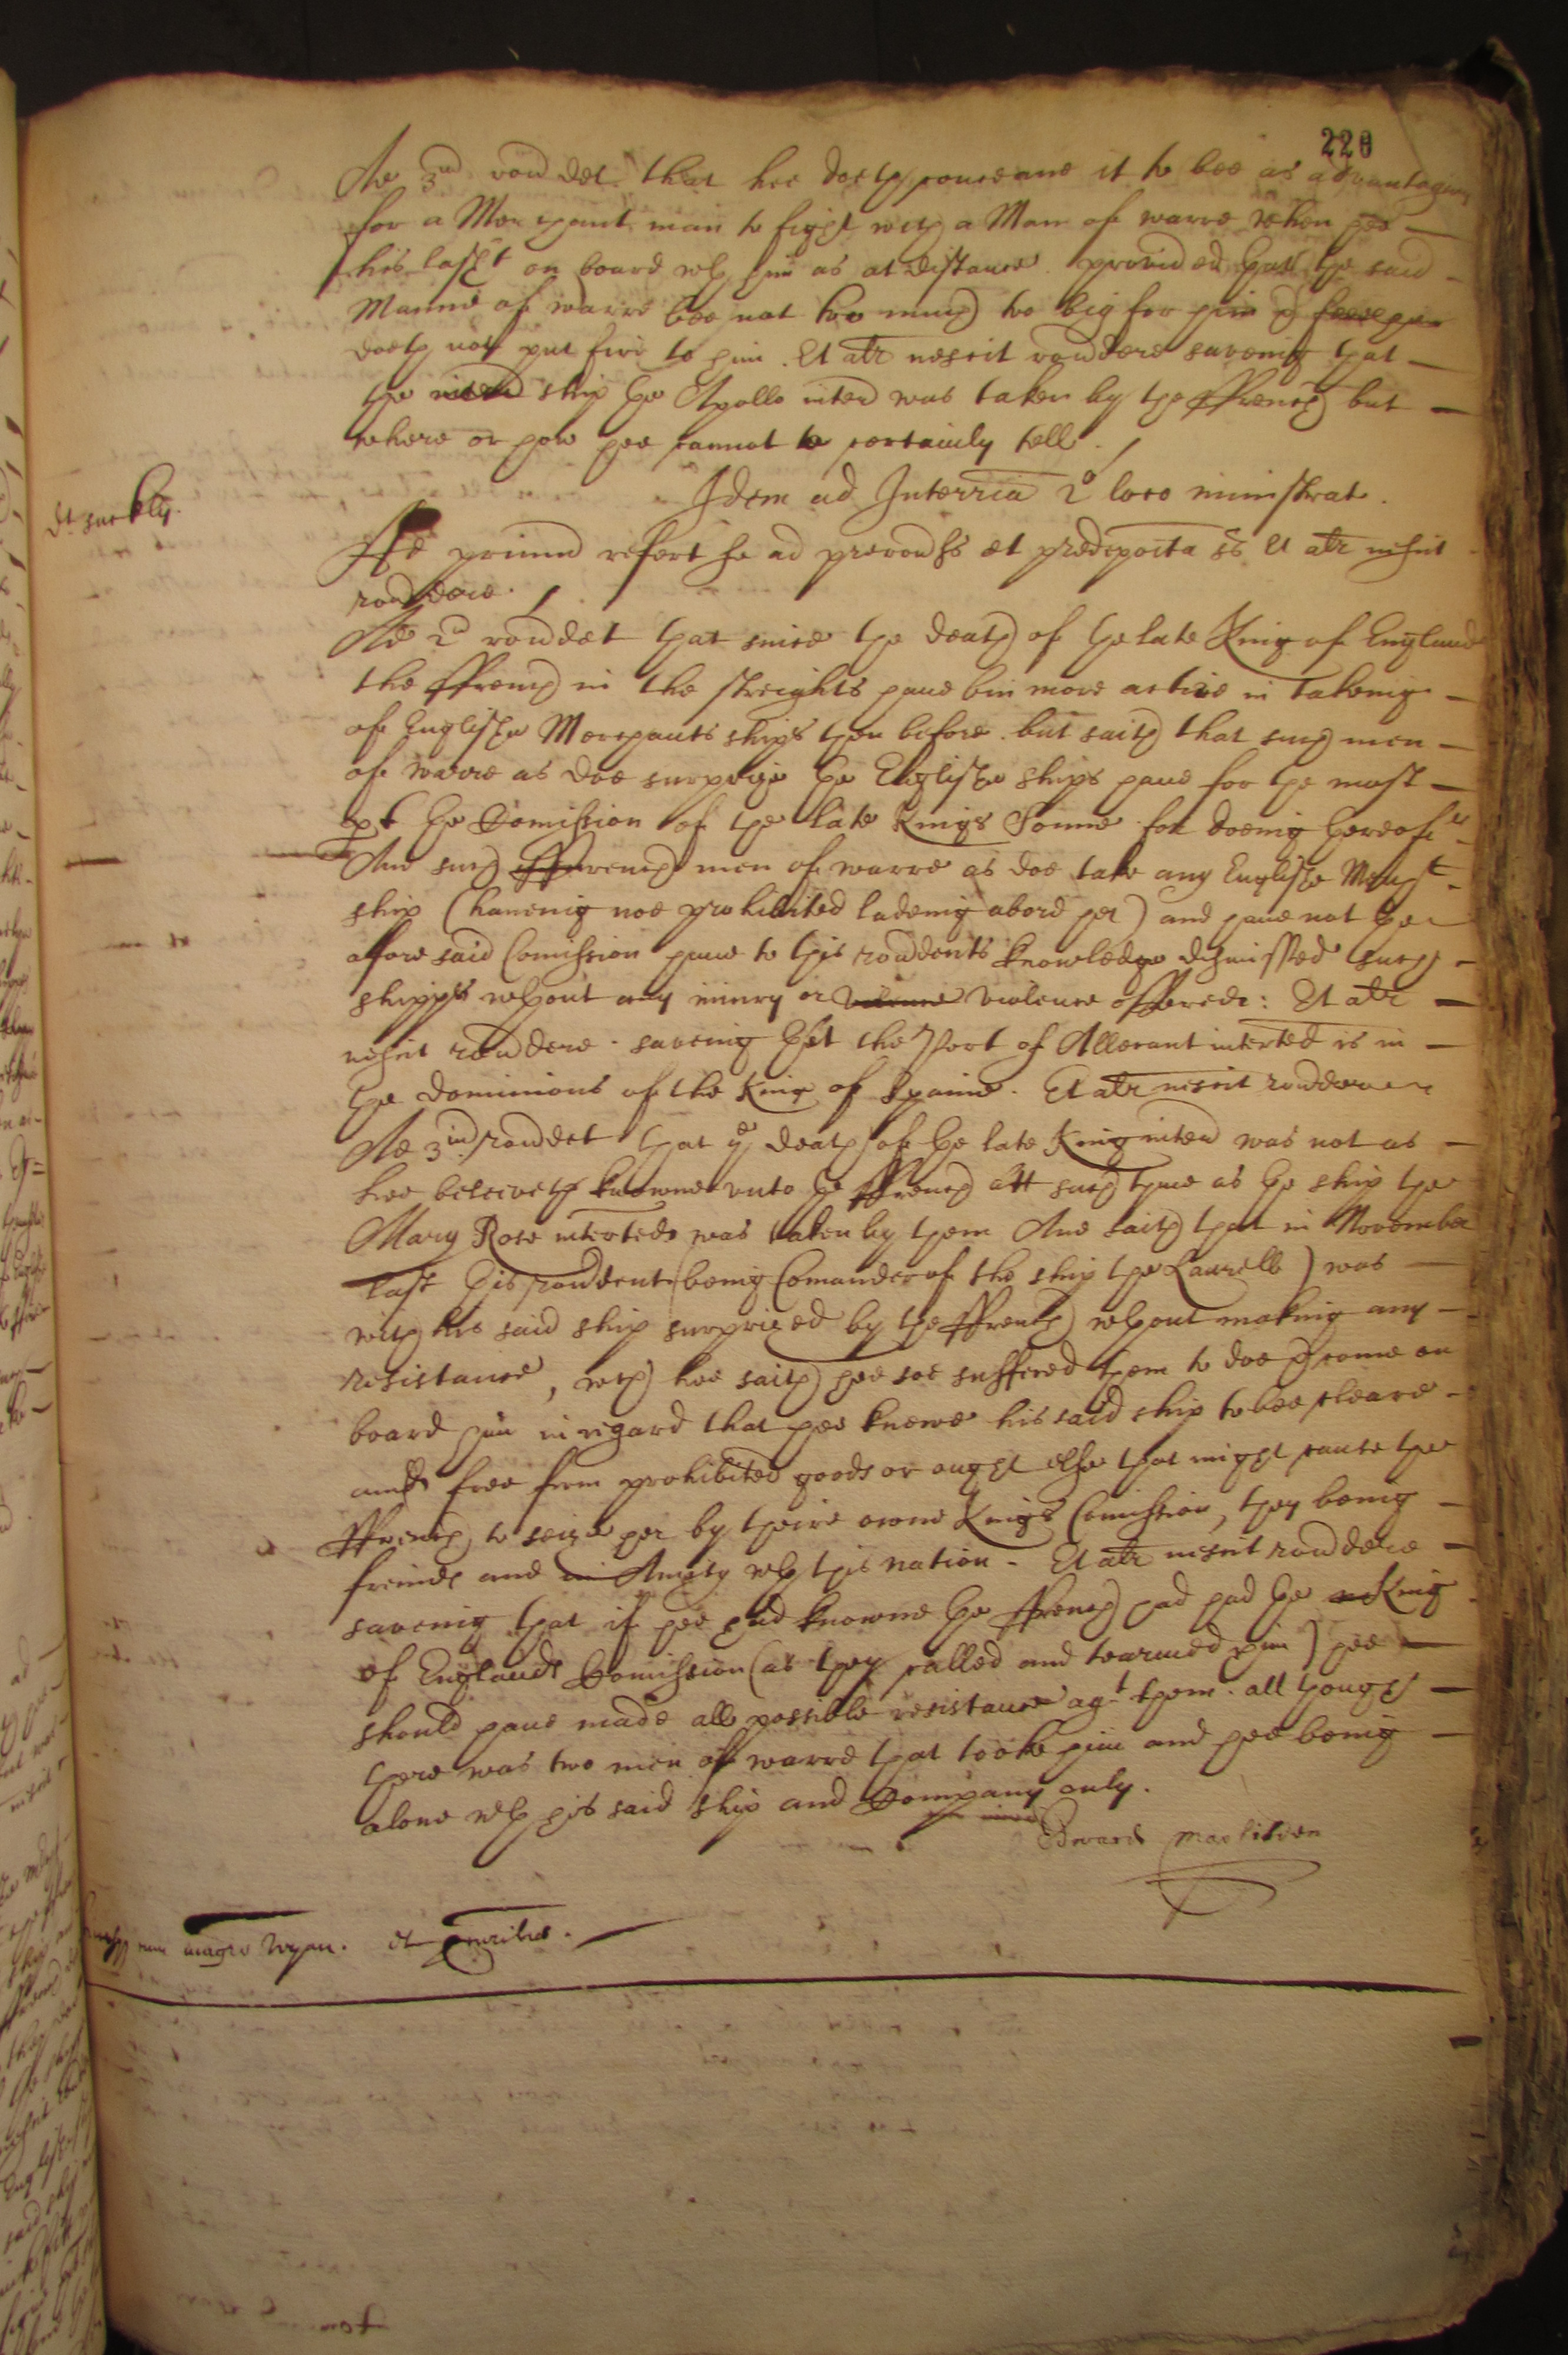 220
Ad 3um rendet that hee doeth conceave it to bee as advantagious
for a Merchant man to fight with a Man of warre when hee
his lasht on board wth him as at distance. provided that the said
Manne of warre bee not too much too big for him &
doeth not put fire to him. Et alr nescit rendere saveing that
the interd ship the Apollo interd was taken by the ffrench but
where or how hee cannot certainly tell.
Idem ad Interria 2o loco ministrat.
dt Suckly.
Ad primum refert se ad prerendss et predeposita ss Et alr nescit
rendere.
Ad 2d rendet that since the death of the late King of England
the ffrench in the streights have bin more active in takeing
of Englishe Merchants ships then before. but saith that such men
of warre as doe surprize the Englishe ships have for the most
pt the Comission of the late Kings Sonne for doeing thereof
And such ffrench men of warre as doe take any Englishe Mercht
ship (haveing noe prohibited ladeing abord her) and have not the
aforesaid Comission have to this rendents knowledge dismissed such
shipps wthout any iniury or violence offered: Et alr
nescit rendere. saveing that the Port of Allecant interted is in
the dominions of the King of Spaine. Et alr nescit rendere
Ad 3um rendet that ye death of the late King interd was not as
hee beleiveth knowne unto the ffrench att such time as the ship the
Mary Rose interted was taken by them And saith that in November
last this rendent (being Comander of the ship the Laurell) was
with his said ship surprized by the ffrench wthout making any
resistance, wch hee saith hee soe suffered them to doe & come on
board him in regard that hee knewe his said ship to bee cleare
and free from prohibited goods or ought else that might cause the
ffrench to seize her by theire owne Kings Comission, they being
freinds and in Amity wth this nation. Et alr nescit rendere
saveing that if hee had knowne the ffrench had had the King
of Englands Comission (as they called and tearmed him) hee
should have made all possible resistance agt them. all though
there was two men of warre that tooke him and hee being
alone wth his said ship and Company only.
Edward
magro Wyan. et